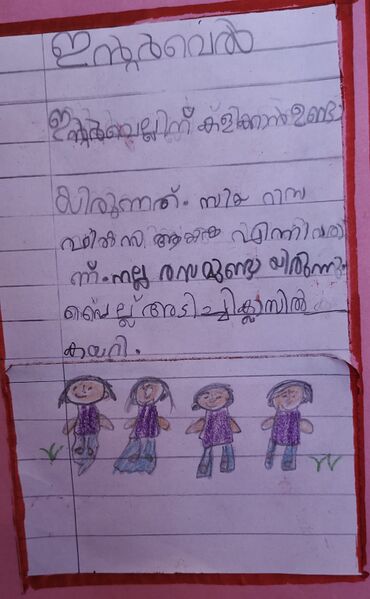 ഇന്റർവെൽ
ഇന്റർബെല്ലിന് കളിക്കാൻ ഉണ്ടാ
യിരുന്നത്. സിയ റിസ
ഫിൽസ എന്നിവരാ
ന്. നല്ല രസമുണ്ടായിരുന്നു.
ബെല്ല് അടിച്ചു ക്ലാസിൽ
കയറി.